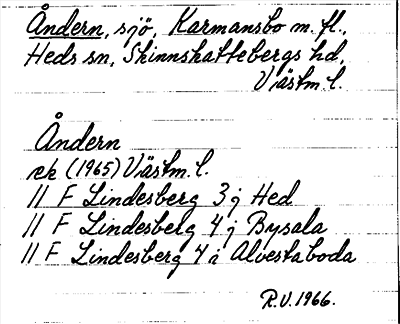 Åndern, sjö, Karmansbo m. fl.,
Heds sn, Skinnskattebergs hd,
Västm. l.
Åndern
ek (1965) Västm. l.
11 F Lindesberg 3 j Hed
11 F Lindesberg 4 j Bysala
11 F Lindesberg 4 i Alvestaboda
R.V. 1966.